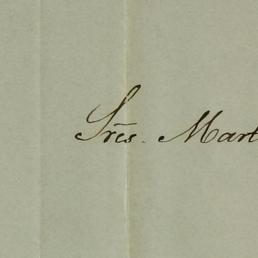 Sres. Mart